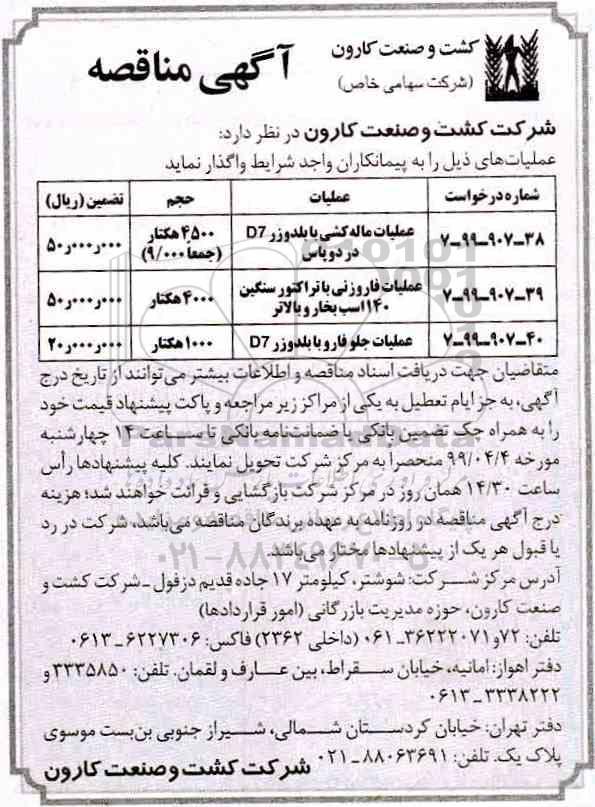 کشت و صنعت کارون
(شرکت سهامی خاص)
آگهی مناقصه
شرکت کشت و صنعت کارون در نظر دارد:
عملیات‌های ذیل را به پیمانکاران واجد شرایط واگذار نماید
شماره درخواست عملیات حجم تضمین (ریال)
۷-۹۹-۹۰۷-۳۸ عملیات ماله کشی با بلدوزر D7 در دو پاس ۴٫۵۰۰ هکتار (جمعاً ۹/۰۰۰) ۵۰٫۰۰۰٫۰۰۰
۷-۹۹-۹۰۷-۳۹ عملیات فاروزنی با تراکتور سنگین ۱۴۰ اسب بخار و بالاتر ۴۰۰۰ هکتار ۵۰٫۰۰۰٫۰۰۰
۷-۹۹-۹۰۷-۴۰ عملیات جلو فارو با بلدوزر D7 ۱۰۰۰ هکتار ۲۰٫۰۰۰٫۰۰۰
متقاضیان جهت دریافت اسناد مناقصه و اطلاعات بیشتر می‌توانند از تاریخ درج
آگهی، به جز ایام تعطیل به یکی از مراکز زیر مراجعه و پاکت پیشنهاد قیمت خود
را به همراه چک تضمین بانکی یا ضمانت‌نامه بانکی تا ساعت ۱۴ چهارشنبه
مورخه ۹۹/۰۴/۴ منحصراً به مرکز شرکت تحویل نمایند. کلیه پیشنهادها رأس
ساعت ۱۴/۳۰ همان روز در مرکز شرکت بازگشایی و قرائت خواهند شد؛ هزینه
درج آگهی مناقصه دو روزنامه به عهده برندگان مناقصه می‌باشد، شرکت در رد
یا قبول هر یک از پیشنهادها مختار می‌باشد.
آدرس مرکز شرکت: شوشتر، کیلومتر ۱۷ جاده قدیم دزفول - شرکت کشت و
صنعت کارون، حوزه مدیریت بازرگانی (امور قراردادها)
تلفن: ۷۲و۳۶۲۲۲۰۷۱-۰۶۱ (داخلی ۲۳۶۲) فاکس: ۶۲۲۷۳۰۶-۰۶۱۳
دفتر اهواز: امانیه، خیابان سقراط، بین عارف و لقمان. تلفن: ۳۳۳۵۸۵۰ و
۰۶۱۳-۳۳۳۸۲۲۲
دفتر تهران: خیابان کردستان شمالی، شیراز جنوبی بن‌بست موسوی
پلاک یک. تلفن: ۸۸۰۶۳۶۹۱-۰۲۱
شرکت کشت و صنعت کارون
ParsNamadData
۰۲۱-۸۸۳۴۹۶۷۰-۵